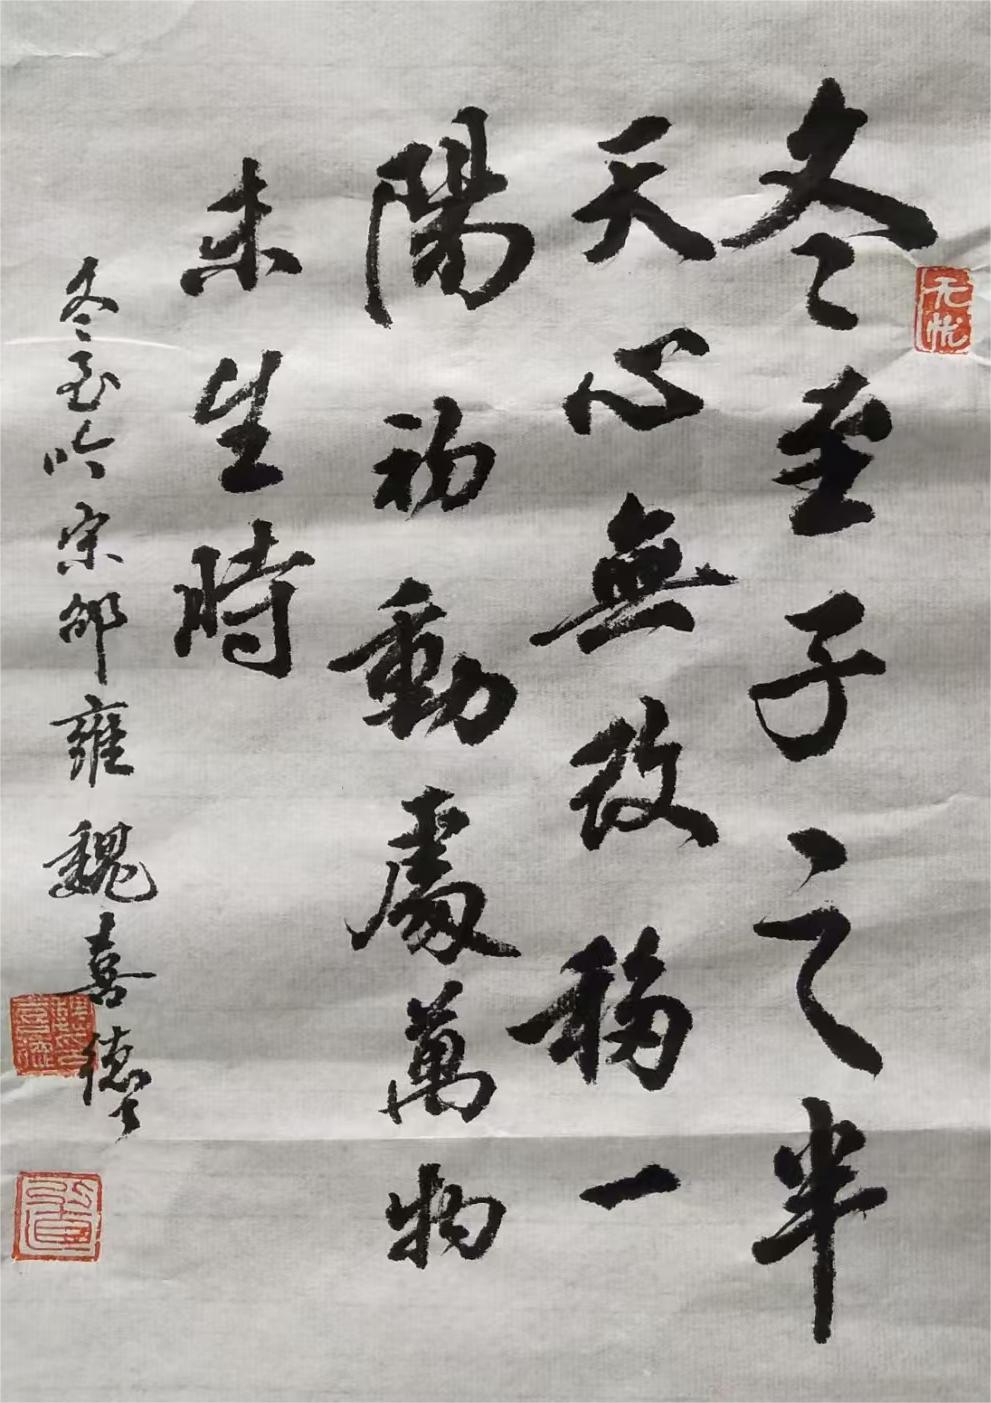 冬至子之半
天心無改移一
陽初動處萬物
未生時
冬至吟宋邵雍魏喜德
无忧